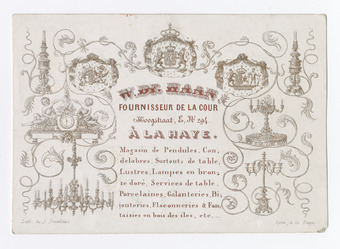 W. DE HAAN,
FOURNISSEUR DE LA COUR
Hoogstraat, E, Nº 294,
À LA HAYE.
Magasin de Pendules, Can,
delabres, Surtouts de table,
Lustres, Lampes en bron,
ze doré, Services de table,
Porcelaines, Galanteries, Bi,
jouteries, Flaconneries & Fan,
taisies en bois des iles, etc.